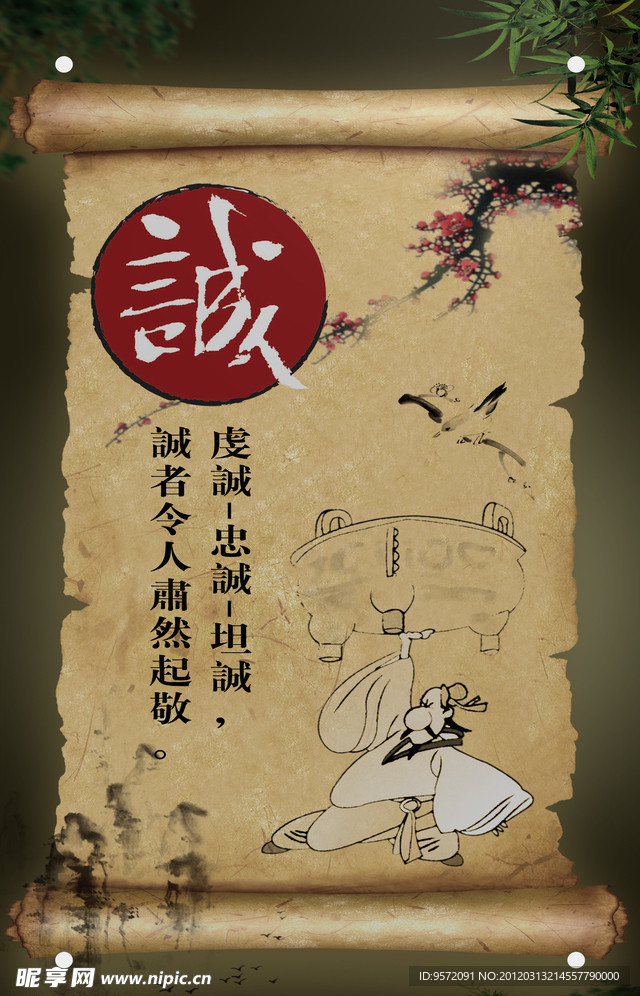 誠
虔誠-忠誠-坦誠，
誠者令人肅然起敬。
昵享网 www.nipic.cn
ID:9572091 NO:20120313214557790000